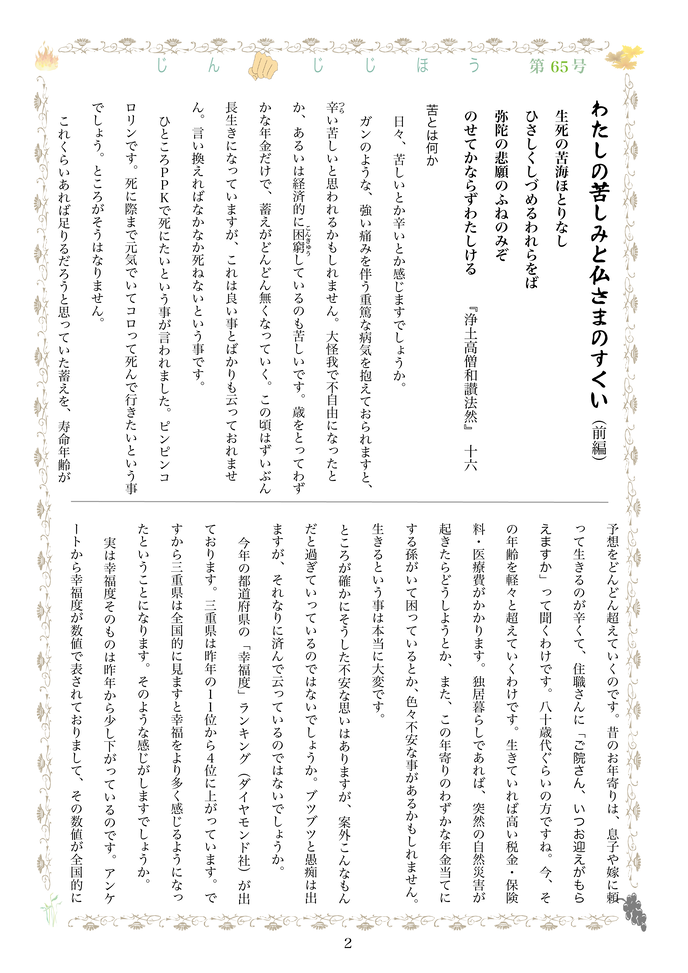 じんじじほう　第65号
わたしの苦しみと仏さまのすくい（前編）
生死の苦海ほとりなし
ひさしくしづめるわれらをば
弥陀の悲願のふねのみぞ
のせてかならずわたしける　『浄土高僧和讃法然』　十六
苦とは何か
日々、苦しいとか辛いとか感じますでしょうか。
ガンのような、強い痛みを伴う重篤な病気を抱えておられますと、
辛い苦しいと思われるかもしれません。大怪我で不自由になったと
か、あるいは経済的に困窮しているのも苦しいです。歳をとってわず
かな年金だけで、蓄えがどんどん無くなっていく。この頃はずいぶん
長生きになっていますが、これは良い事とばかりも云っておれませ
ん。言い換えればなかなか死ねないという事です。
ひところＰＰＫで死にたいという事が言われました。ピンピンコ
ロリンです。死に際まで元気でいてコロって死んで行きたいという事
でしょう。ところがそうはなりません。
これくらいあれば足りるだろうと思っていた蓄えを、寿命年齢が
予想をどんどん超えていくのです。昔のお年寄りは、息子や嫁に頼
って生きるのが辛くて、住職さんに「ご院さん、いつお迎えがもら
えますか」って聞くわけです。八十歳代ぐらいの方ですね。今、そ
の年齢を軽々と超えていくわけです。生きていれば高い税金・保険
料・医療費がかかります。独居暮らしであれば、突然の自然災害が
起きたらどうしようとか、また、この年寄りのわずかな年金当てに
する孫がいて困っているとか、色々不安な事があるかもしれません。
生きるという事は本当に大変です。
ところが確かにそうした不安な思いはありますが、案外こんなもん
だと過ぎていっているのではないでしょうか。ブツブツと愚痴は出
ますが、それなりに済んで云っているのではないでしょうか。
今年の都道府県の「幸福度」ランキング（ダイヤモンド社）が出
ております。三重県は昨年の１１位から４位に上がっています。で
すから三重県は全国的に見ますと幸福をより多く感じるようになっ
たということになります。そのような感じがしますでしょうか。
実は幸福度そのものは昨年から少し下がっているのです。アンケ
ートから幸福度が数値で表されておりまして、その数値が全国的に
2